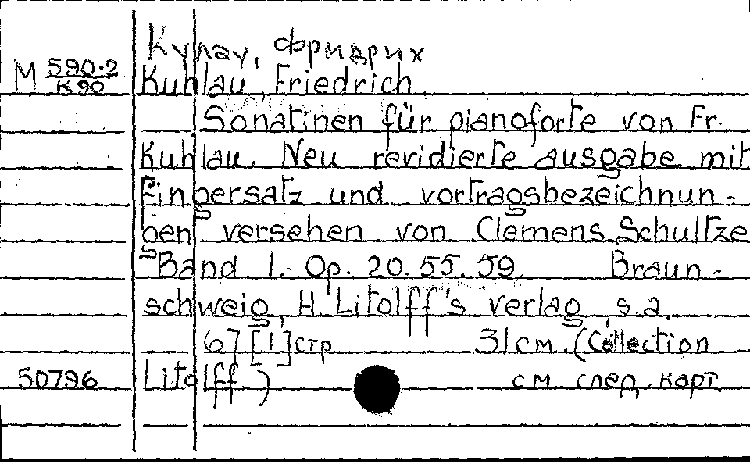 Кулау, Фридрих
М 590.2
К 90
Kuhlau, Friedrich.
Sonatinen für pianoforte von Fr.
Kuhlau. Neu revidierte ausgabe mit
Fingersatz und vortragsbezeichnun-
gen versehen von Clemens Schultze
Band 1. Op. 20. 55. 59. Braun-
schweig, H. Litolff's verlag, s.a.
67 [1] стр 31 см. (Collection
50796 Litolff.)
см след. карт